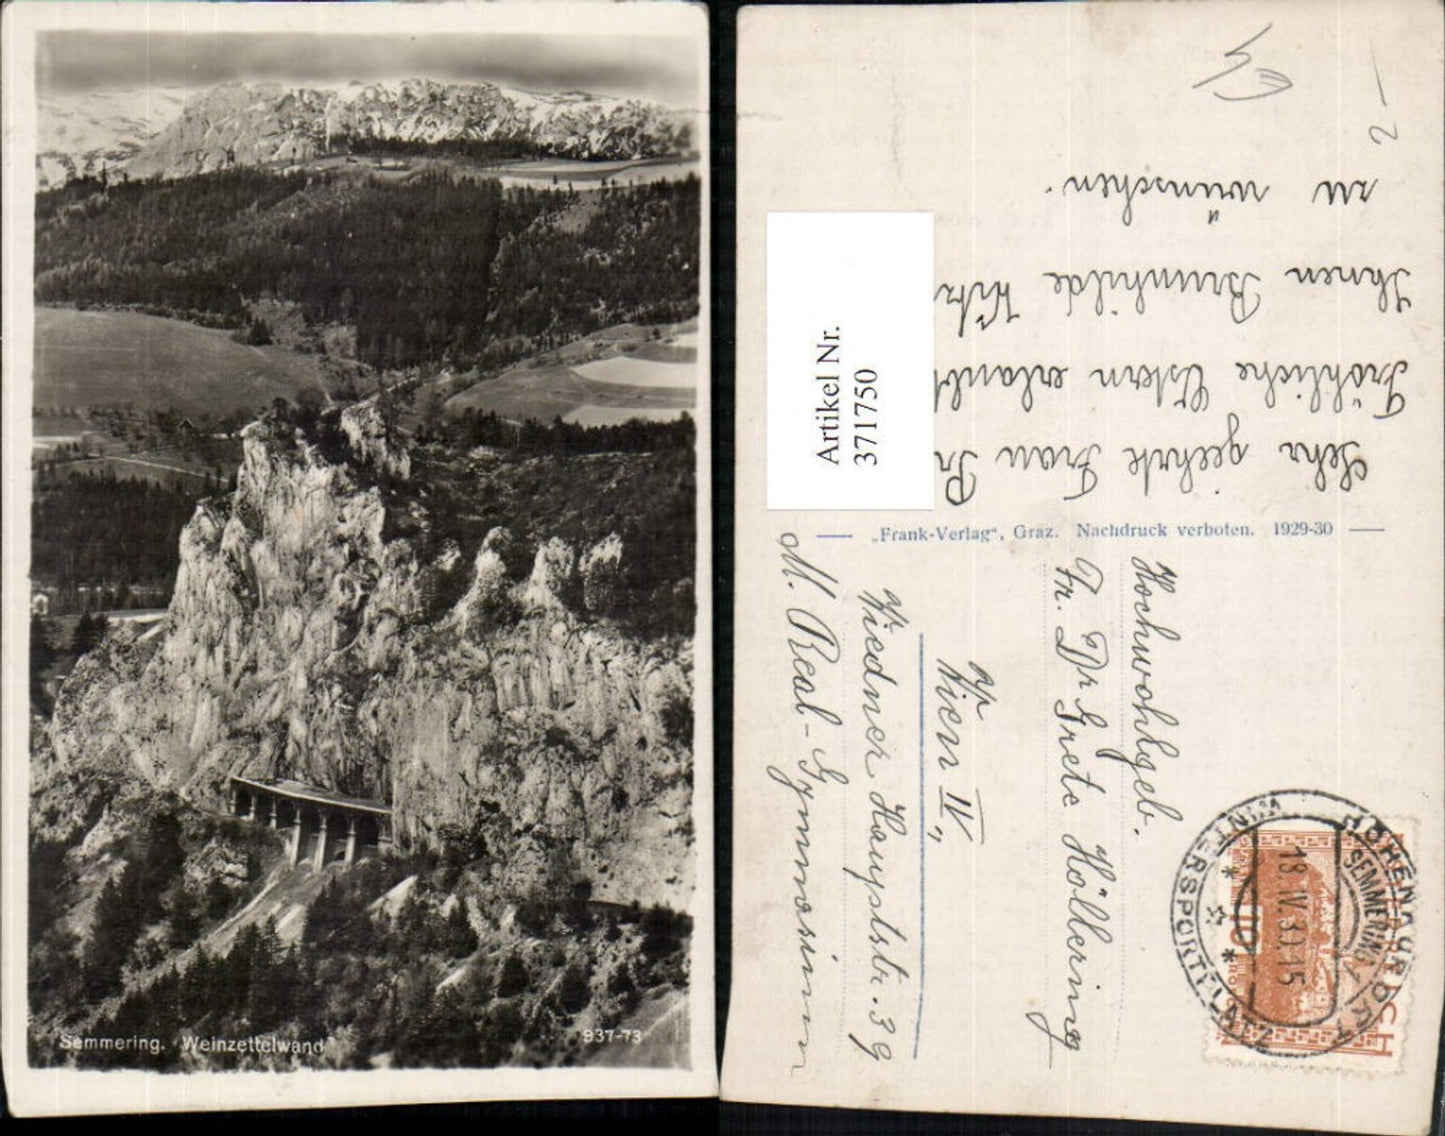 Semmering. Weinzettelwand
937-73
Artikel Nr.
371750
Sehr geehrte Frau
Fröhliche Ostern erlaubt
Ihnen Brunhilde
zu wünschen.
„Frank-Verlag“, Graz. Nachdruck verboten. 1929-30
Hochwohlgeb.
Fr. Dr Grete Hölbering
Wien IV,
Wiedner Hauptstr. 39
M. Real-Gymnasium
HÖHENKURORT
SEMMERING
18.IV.31.15
WINTERSPORTPLATZ
10